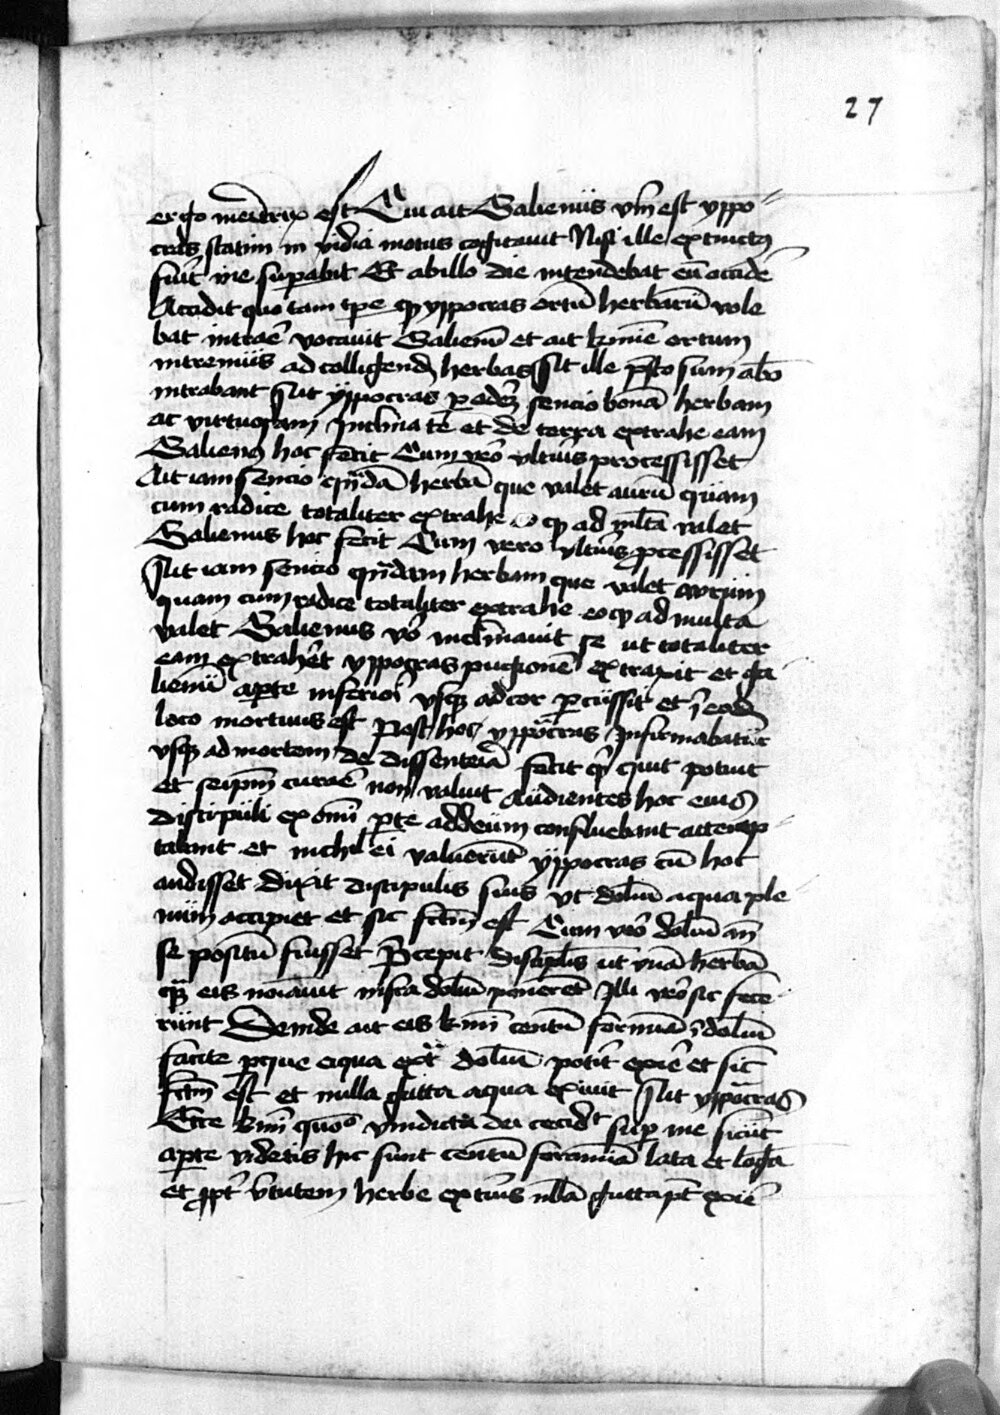 27
ergo meretrix est Cui ait Galienus vm̄ est yppo-
cras statim in vidia motus cogitauit Nisi ille extinctꝰ
fuit me supabit Et ab illo die intendebat eū occide
Accidit quo tam tpe qꝫ yppocras ortū herbarū vole
bat intrae vocauit Galienū et ait kmie ortum
intremus ad colligend herbas Ait ille psto sum abo
intrabant Ait yppocras p odez sencio bonā herbam
ac virtuosam Inclina te et de terra extrahe eam
Galienꝰ hoc fecit Cum vero vlterius processisset
Ait iam sencio qn̄dā herbā que valet aurū quam
cum radice totaliter extrahe eo qꝫ ad ml̄ta valet
Galienus hoc fecit Cum vero vlterius pcessisset
Ait iam sencio qn̄dam herbam que valet aurum
quam cum radice totaliter extrahe eo qꝫ ad multa
valet Galienus vo inclinauit se ut totaliter
eam extraheret yppocras pugionē extraxit et ga
lienū a pte inferiori vsqꝫ ad cor percussit et ī eodē
loco mortuus est Post hoc yppocras Infirmabatur
vsqꝫ ad mortem de dissenteriā fecit qꝫ quit potuit
et seipm̄ curaē non valuit Audientes hoc eiusꝰ
discipuli ex omī pte ad deum confluebant attemp-
tabant et nichil ei valuerūt yppocras cū hoc
audisset dixit discipulis suis vt doliū aqua ple
num accipiēt et sic fctm̄ est Cum vero doliū an̄
se positū fuisset Precepit discipulis ut vnā herbā
qꝫ eis noīauit infra doliū ponerēt Illi vero sic fece
runt Deinde ait eis kmi centū foramīa ī doliū
facite pque aqua extra doliū poterit exire et sic
fctm̄ est et nulla gutta aqua exiuit Ait yppocras
Ecce kmi quō vindicta dei cecidit sup me sicut
aperte videtis hic sunt centū foramīa lata et lōga
et ppt̄ v̄tutem herbe extīus nulla gutta pt̄ exire